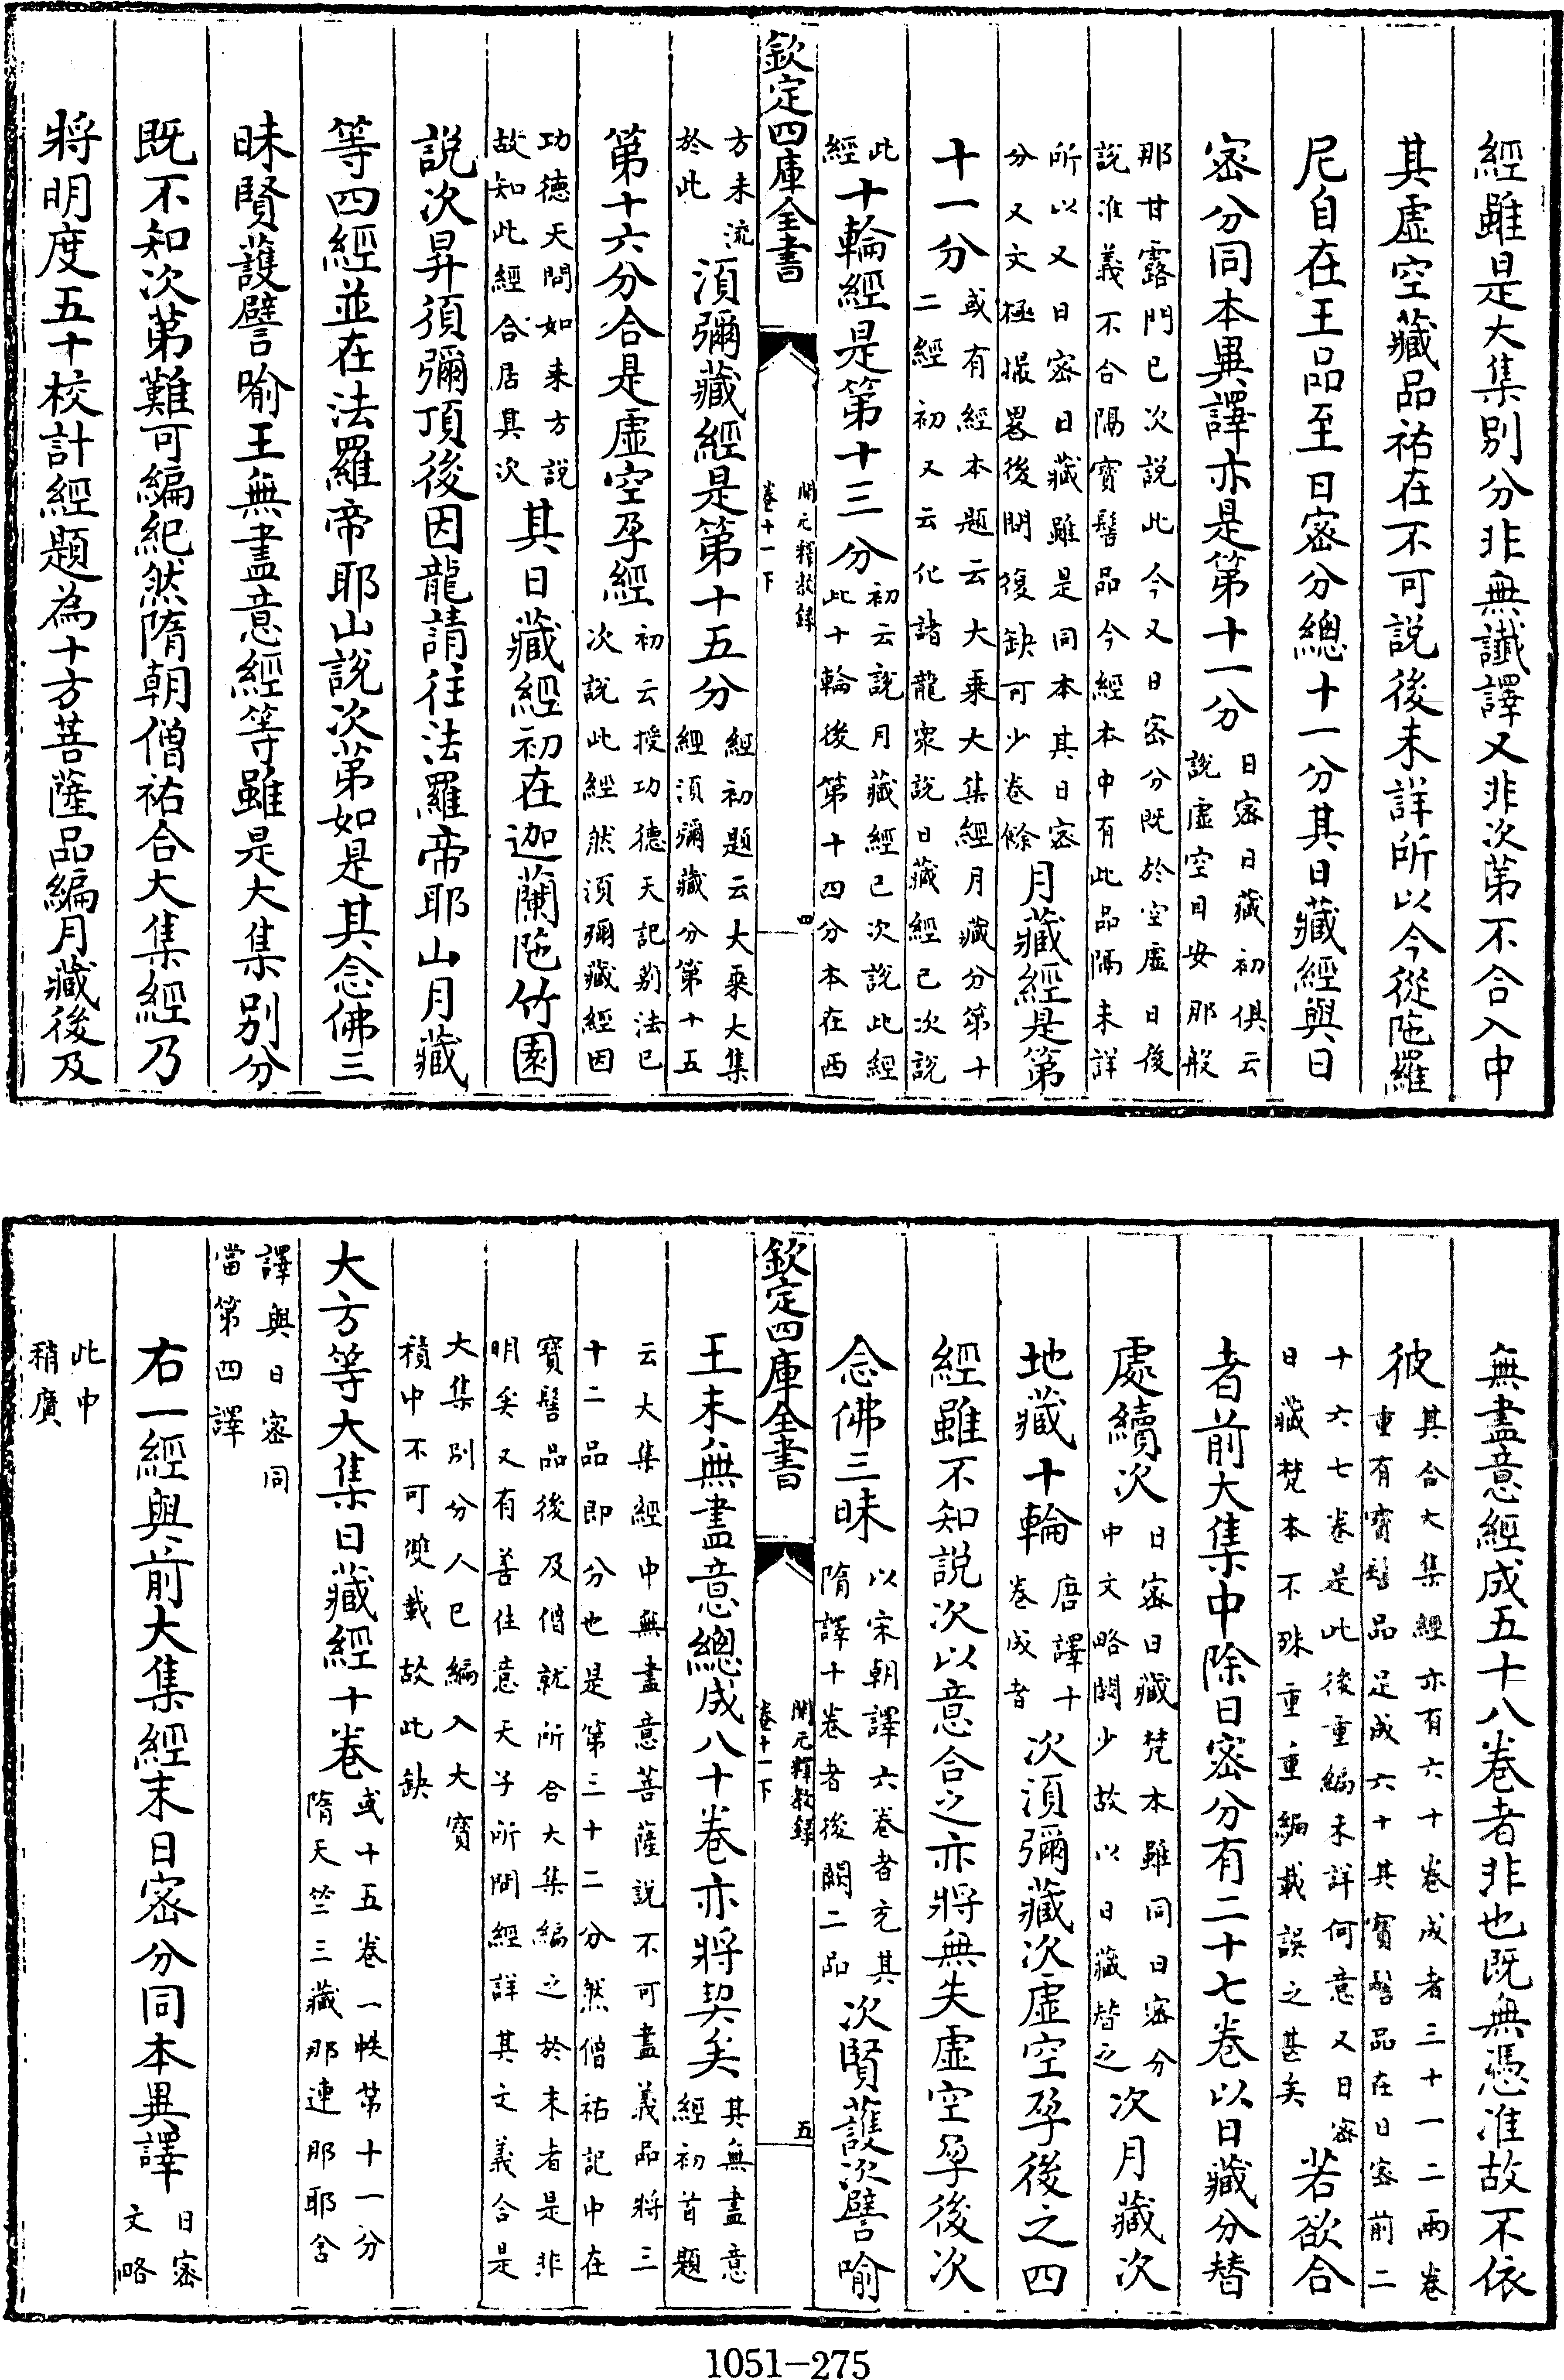 經雖是大集別分非無讖譯又非次第不合入中
其虛空藏品祐在不可說後未詳所以今從陁羅
尼自在王品至日密分總十一分其日藏經與日
密分同本異譯亦是第十一分
日密日藏初俱云
說虛空目安那般
那甘露門已次說此今又日密分既於空虛目後
說准義不合隔寳髻品今經本中有此品隔未詳
所以又日密日藏雖是同本其日密
分又文極撮畧後問復缺可少卷餘
月藏經是第
十一分
或有經本題云大乗大集經月藏分第十
二經初又云化諸龍衆說日藏經已次說
此
經
十輪經是第十三分
初云說月藏經已次說此經
此十輪後第十四分本在西
欽定四庫全書
開元釋敎録
卷十一下
四
方未流
於此
湏彌藏經是第十五分
經初題云大乗大集
經湏彌藏分第十五
第十六分合是虛空孕經
初云授功德天記莂法已
次說此經然湏彌藏經因
功德天問如来方說
故知此經合居其次
其日藏經初在迦蘭陁竹園
說次昇須彌頂後因龍請往法羅帝耶山月藏
等四經並在法羅帝耶山說次第如是其念佛三
昧賢護譬喻王無盡意經等雖是大集別分
既不知次第難可編紀然隋朝僧祐合大集經乃
將明度五十校計經題為十方菩薩品編月藏後及
無盡意經成五十八卷者非也既無憑准故不依
彼
其合大集經亦有六十卷成者三十一二兩卷
重有寳髻品足成六十其寳髻品在日密前二
十六七卷是此後重編未詳何意又日密
日藏梵本不殊重重編載誤之甚矣
若欲合
者前大集中除日密分有二十七卷以日藏分替
處續次
日密日藏梵本雖同日密分
中文略闕少故以日藏替之
次月藏次
地藏十輪
唐譯十
卷成者
次湏彌藏次虛空孕後之四
經雖不知說次以意合之亦將無失虛空孕後次
念佛三昧
以宋朝譯六卷者充其
隋譯十卷者後闕二品
次賢護次譬喻
欽定四庫全書
開元釋敎録
卷十一下
五
王末無盡意總成八十卷亦將契矣
其無盡意
經初首題
云大集經中無盡意菩薩說不可盡義品將三
十二品即分也是第三十二分然僧祐記中在
寳髻品後及僧就所合大集編之於末者是非
明矣又有善住意天子所問經詳其文義合是
大集別分人已編入大寳
積中不可雙載故此缺
大方等大集日藏經十卷
或十五卷一帙第十一分
隋天竺三藏那連那耶舍
譯與日密同
當第四譯
右一經與前大集經末日密分同本異譯
日密
文略
此中
稍廣
1051-275